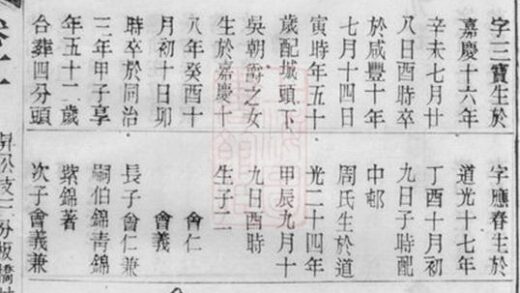 字三寶生於
嘉慶十六年
辛未七月廿
八日酉時卒
於咸豐十年
七月十四日
寅時年五十
歲配城頭下
吳朝爵之女
生於嘉慶十
八年癸酉十
月初十日卯
時卒於同治
三年甲子享
年五十二歲
合葬四分頭
字應春生於
道光十七年
丁酉十月初
九日子時配
中邨
周氏生於道
光二十四年
甲辰九月十
九日酉時
生子二
會仁
會義
長子會仁兼
嗣伯錦青錦
紫錦著
次子會義兼
公支二分板橋